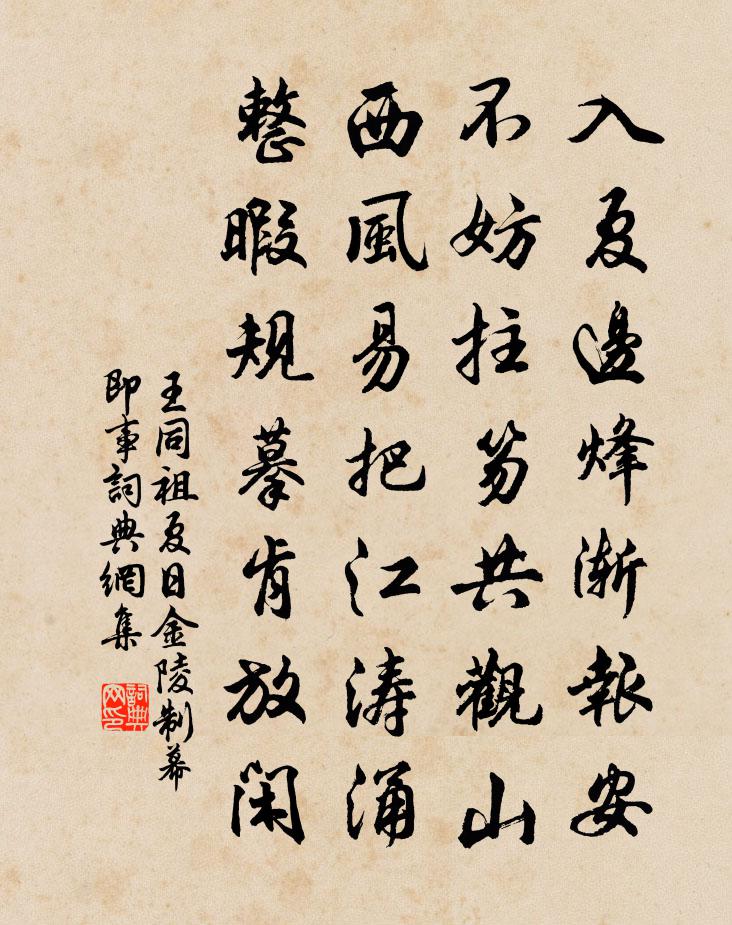 入夏邊烽漸報安
不妨拄笏共觀山
西風易把江濤涌
整暇規摹肯放閑
王同祖夏日金陵制幕
即事詞典網集
詞典網印